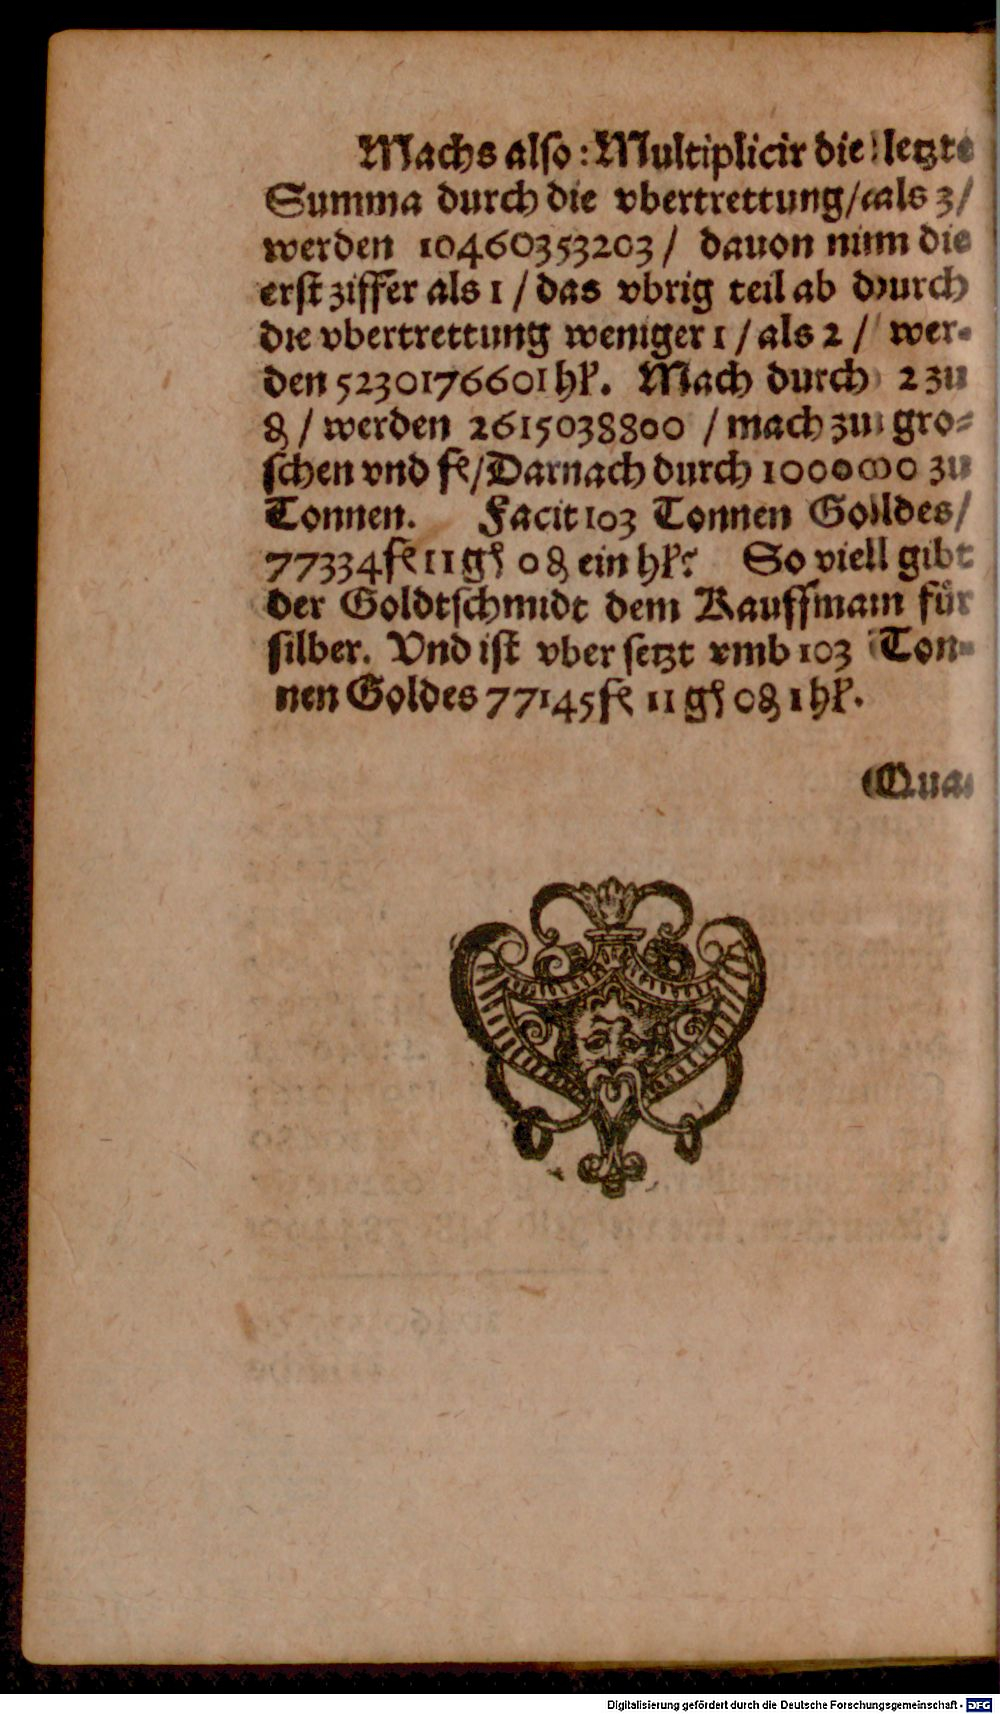 Machs also: Multiplicir die letzte
Summa durch die vbertrettung/ als 3/
werden 10460353203/ dauon nim die
erst ziffer als 1/ das vbrig teil ab durch
die vbertrettung weniger 1/ als 2/ wer-
den 5230176601 hl. Mach durch 2 zu
₰/ werden 2615038800/ mach zu gro-
schen vnd fl/ Darnach durch 1000000 zu
Tonnen. Facit 103 Tonnen Goldes/
77334 fl 11 gl 0 ₰ ein hl: So viell gibt
der Goldtschmidt dem Kauffmann für
silber. Vnd ist vber setzt vmb 103 Ton-
nen Goldes 77145 fl 11 gl 0 ₰ 1 hl.
Qua-
Digitalisierung gefördert durch die Deutsche Forschungsgemeinschaft - DFG